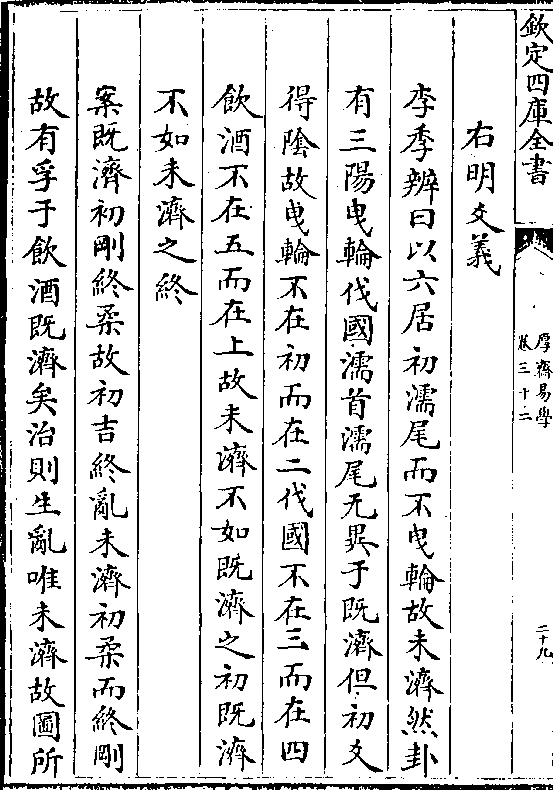 欽定四庫全書
厚齋易學
卷三十二
二十九
右明爻義
李季辨曰以六居初濡尾而不曳輪故未濟然卦
有三陽曳輪伐國濡首濡尾无異于既濟但初爻
得陰故曳輪不在初而在二伐國不在三而在四
飲酒不在五而在上故未濟不如既濟之初既濟
不如未濟之終
案既濟初剛終柔故初吉終亂未濟初柔而終剛
故有孚于飲酒既濟矣治則生亂唯未濟故圖所